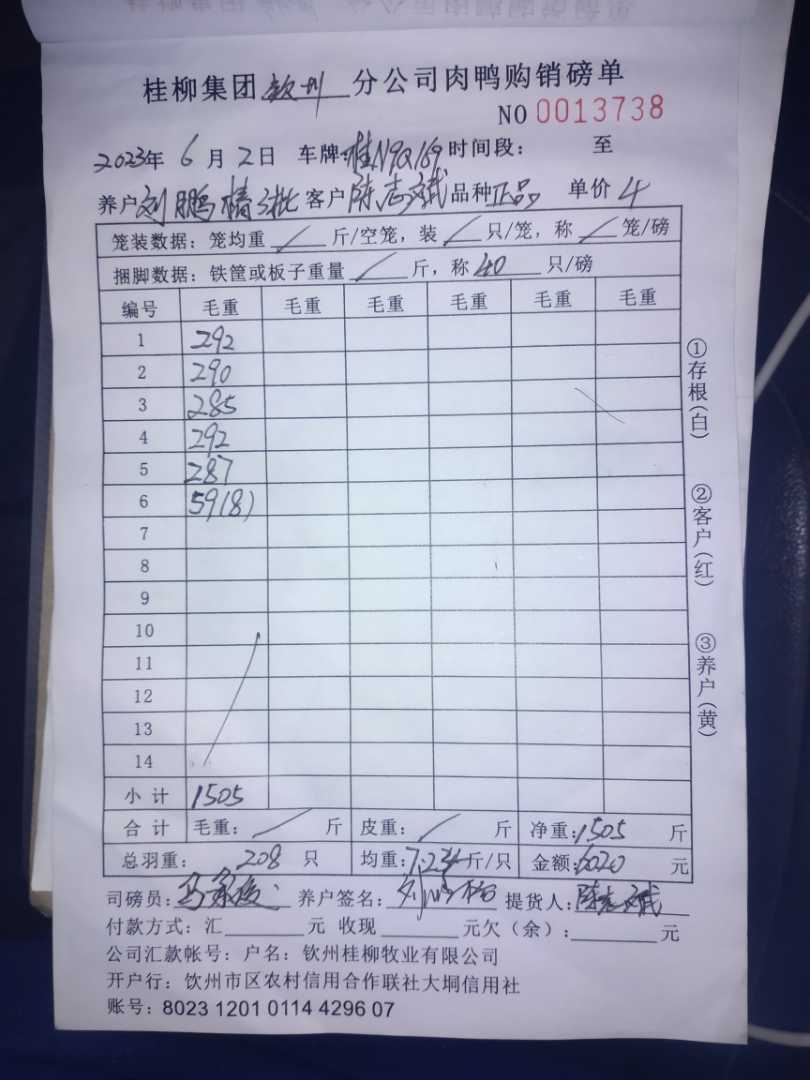 桂柳集团 钦州 分公司肉鸭购销磅单
NO 0013738
2023年 6 月 2 日 车牌:桂N9Q169 时间段: 至
养户 刘鹏 批 客户 陈志斌 品种 正品 单价 4
笼装数据: 笼均重 / 斤/空笼, 装 / 只/笼, 称 / 笼/磅
捆脚数据: 铁筐或板子重量 / 斤, 称 40 只/磅
编号 毛重 毛重 毛重 毛重 毛重 毛重
1 292
2 290
3 285
4 292
5 287
6 59(8)
7
8
9
10
11
12
13
14
小 计 1505
合 计 毛重: / 斤 皮重: / 斤 净重:1505 斤
总羽重: 208 只 均重:7.234 斤/只 金额:6020 元
司磅员: 养户签名: 提货人:陈志斌
付款方式: 汇 元 收现 元欠(余): 元
公司汇款帐号: 户名: 钦州桂柳牧业有限公司
开户行: 钦州市区农村信用合作联社大垌信用社
账号: 8023 1201 0114 4296 07
①存根(白)
②客户(红)
③养户(黄)